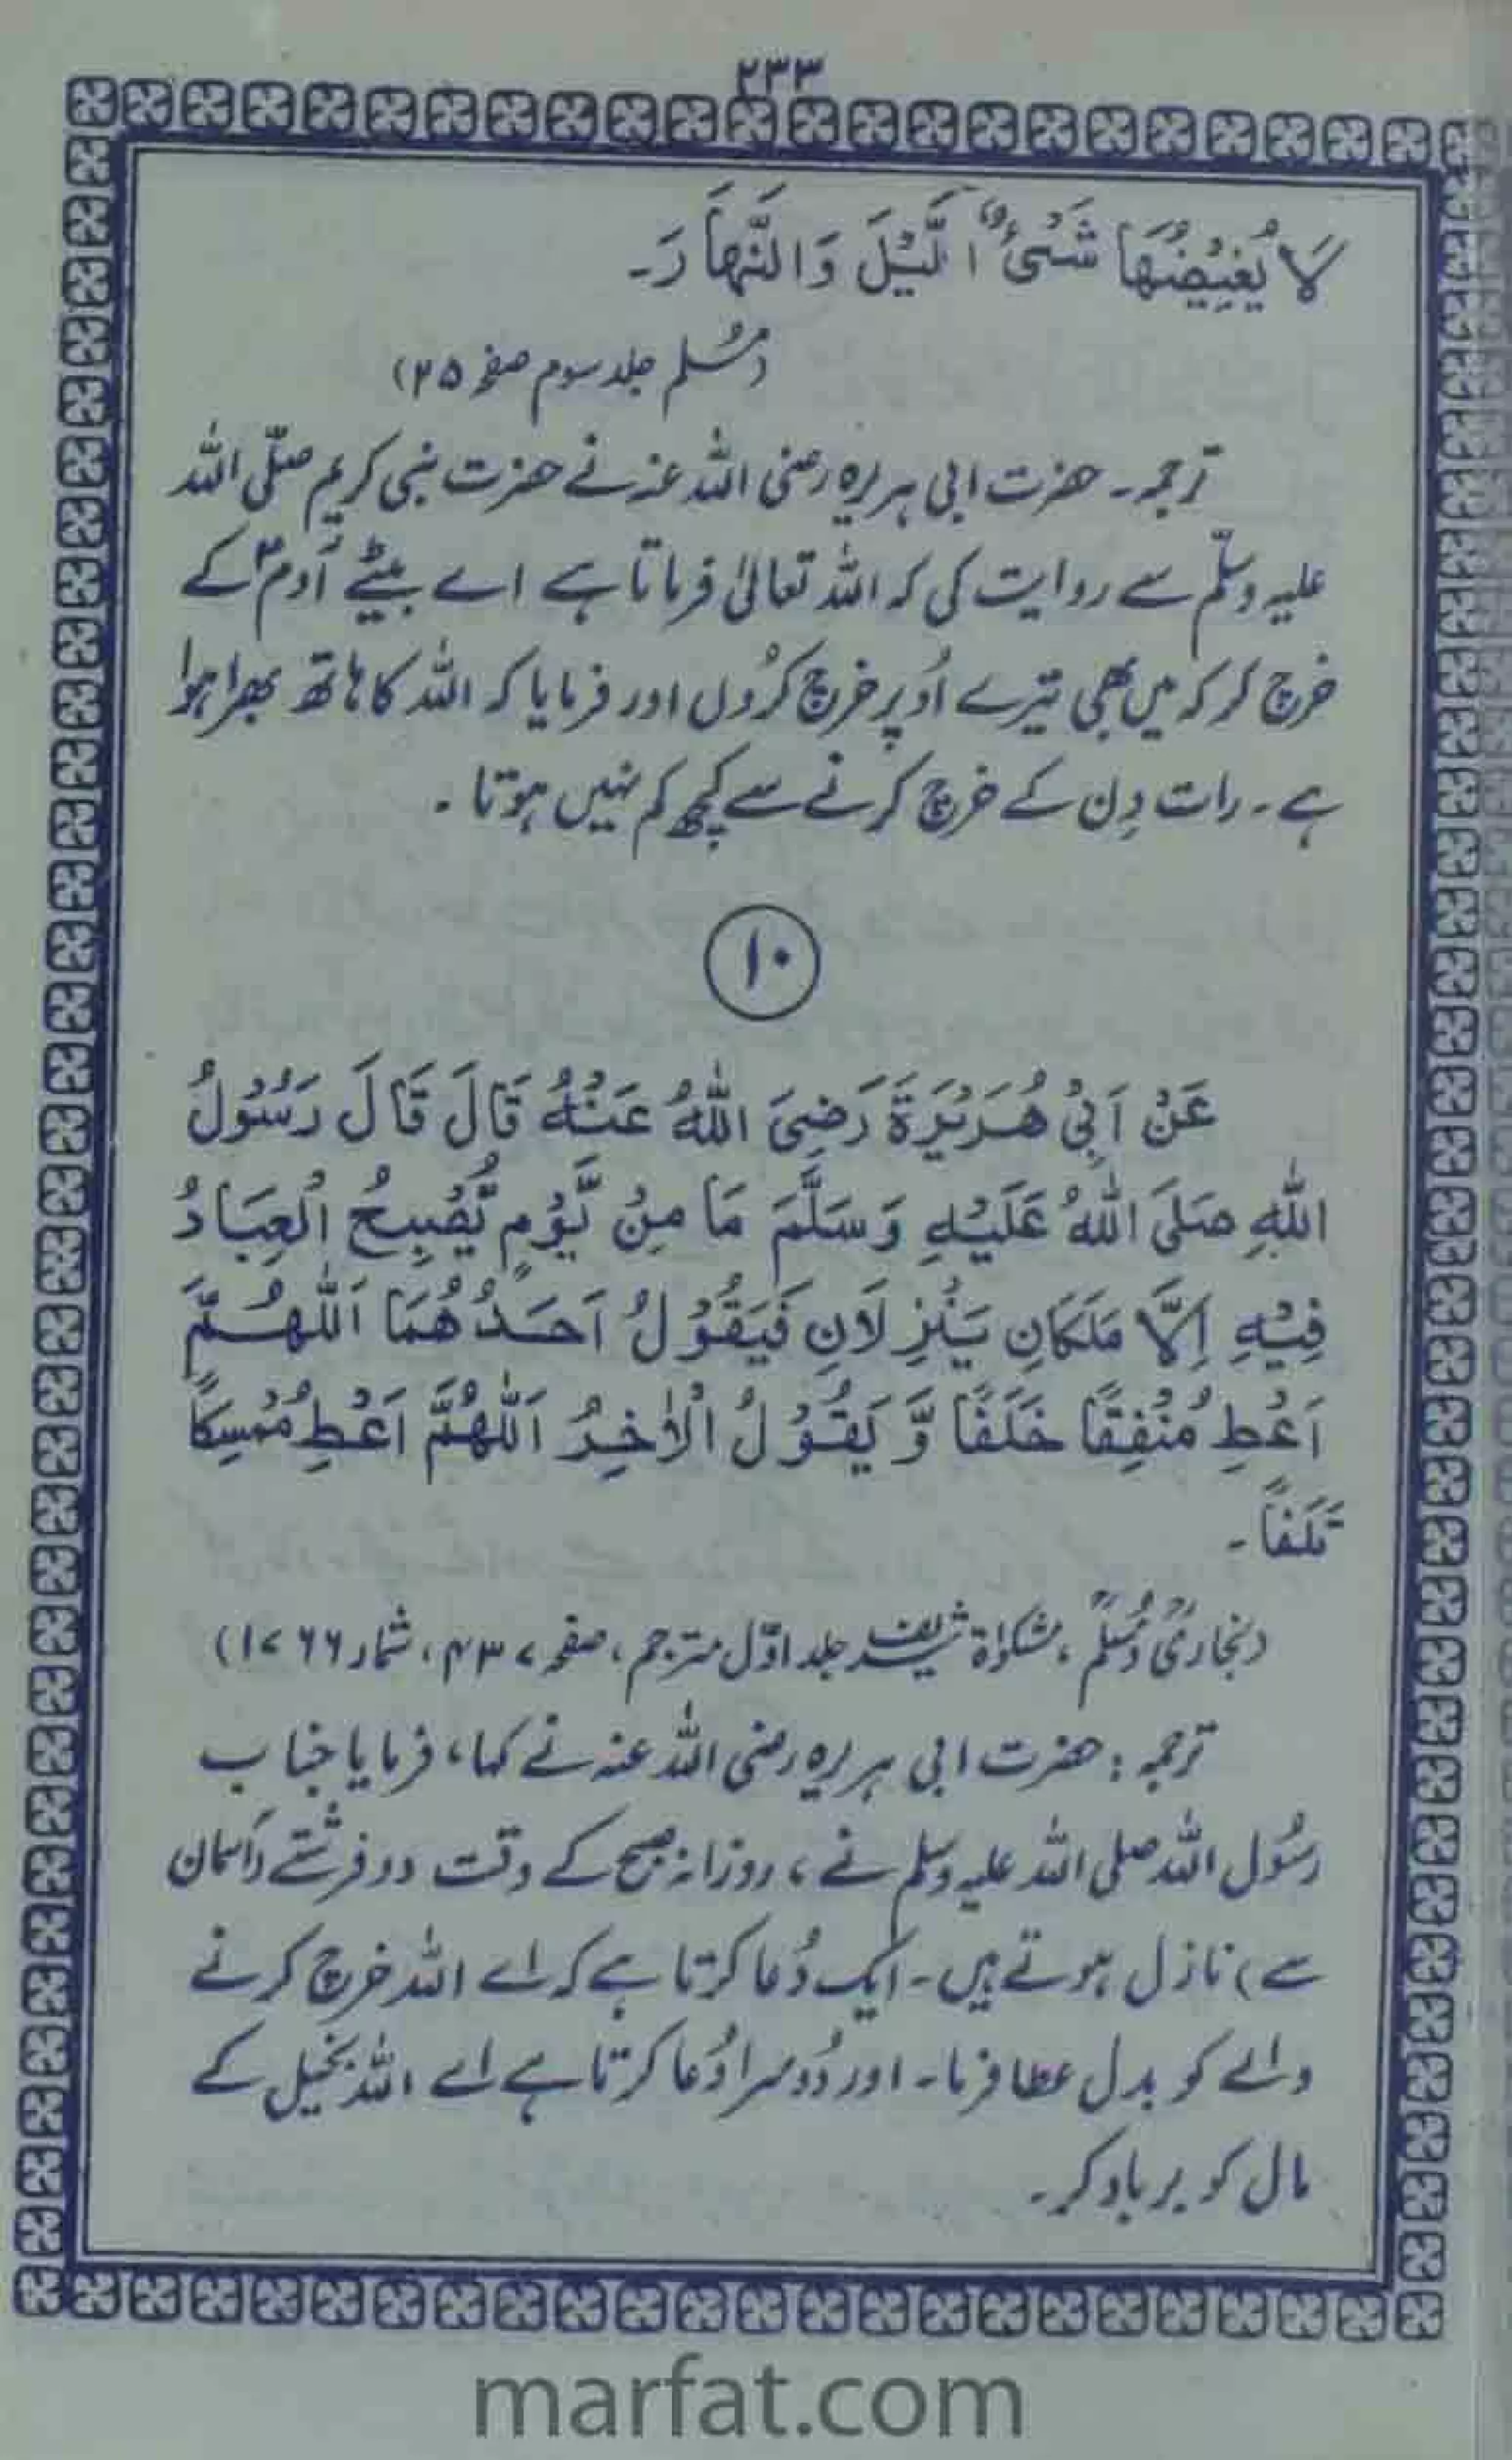 ۲۳۳
لَا يُغِيْضُهَا شَيْءٌ الَّيْلَ وَالنَّهَارَ۔
(مُسلم جلد سوم صفحہ ۲۵)
ترجمہ۔ حضرت ابی ہریرہ رضی اللہ عنہ نے حضرت نبی کریم صلّی اللہ
علیہ وسلّم سے روایت کی کہ اللہ تعالیٰ فرماتا ہے اے بیٹے آدمؑ کے
خرچ کر کہ میں بھی تیرے اُوپر خرچ کرُوں اور فرمایا کہ اللہ کا ہاتھ بھرا ہوا
ہے۔ رات دِن کے خرچ کرنے سے کچھ کم نہیں ہوتا ۔
۱۰
عَنْ اَبِيْ هُرَيْرَةَ رَضِيَ اللّٰهُ عَنْهُ قَالَ قَالَ رَسُوْلُ
اللّٰهِ صَلَى اللّٰهُ عَلَيْهِ وَسَلَّمَ مَا مِنْ يَّوْمٍ يُّصْبِحُ الْعِبَادُ
فِيْهِ اِلَّا مَلَكَانِ يَنْزِلَانِ فَيَقُوْلُ اَحَدُهُمَا اَللّٰهُمَّ
اَعْطِ مُنْفِقًا خَلَفًا وَّ يَقُوْلُ الْاٰخِرُ اَللّٰهُمَّ اَعْطِ مُمْسِكًا
تَلَفًا۔
(بخاریؒ و مُسلمؒ ، مشکوٰۃ شریف جلد اوّل مترجم، صفحہ ۴۳۷، شمار ۱۷۶۶)
ترجمہ : حضرت ابی ہریرہ رضی اللہ عنہ نے کہا، فرمایا جناب
رسُول اللہ صلی اللہ علیہ وسلم نے ، روزانہ صبح کے وقت دو فرشتے (آسمان
سے) نازل ہوتے ہیں۔ ایک دُعا کرتا ہے کہ اے اللہ خرچ کرنے
والے کو بدل عطا فرما۔ اور دُوسرا دُعا کرتا ہے اے اللہ بخیل کے
مال کو برباد کر۔
marfat.com